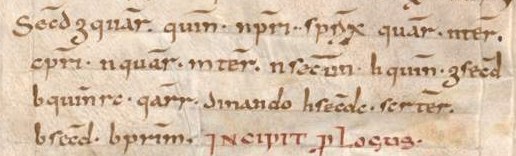 Secd ꝫ quar. quin. n pri. spax quar. n ter.
c pri. n quar. m ter. n secun. h quin. ꝫ secd
b quin rc. q arr. dinando h secdc. scr ter.
b secd. b prim. INCIPIT PLOGUS.